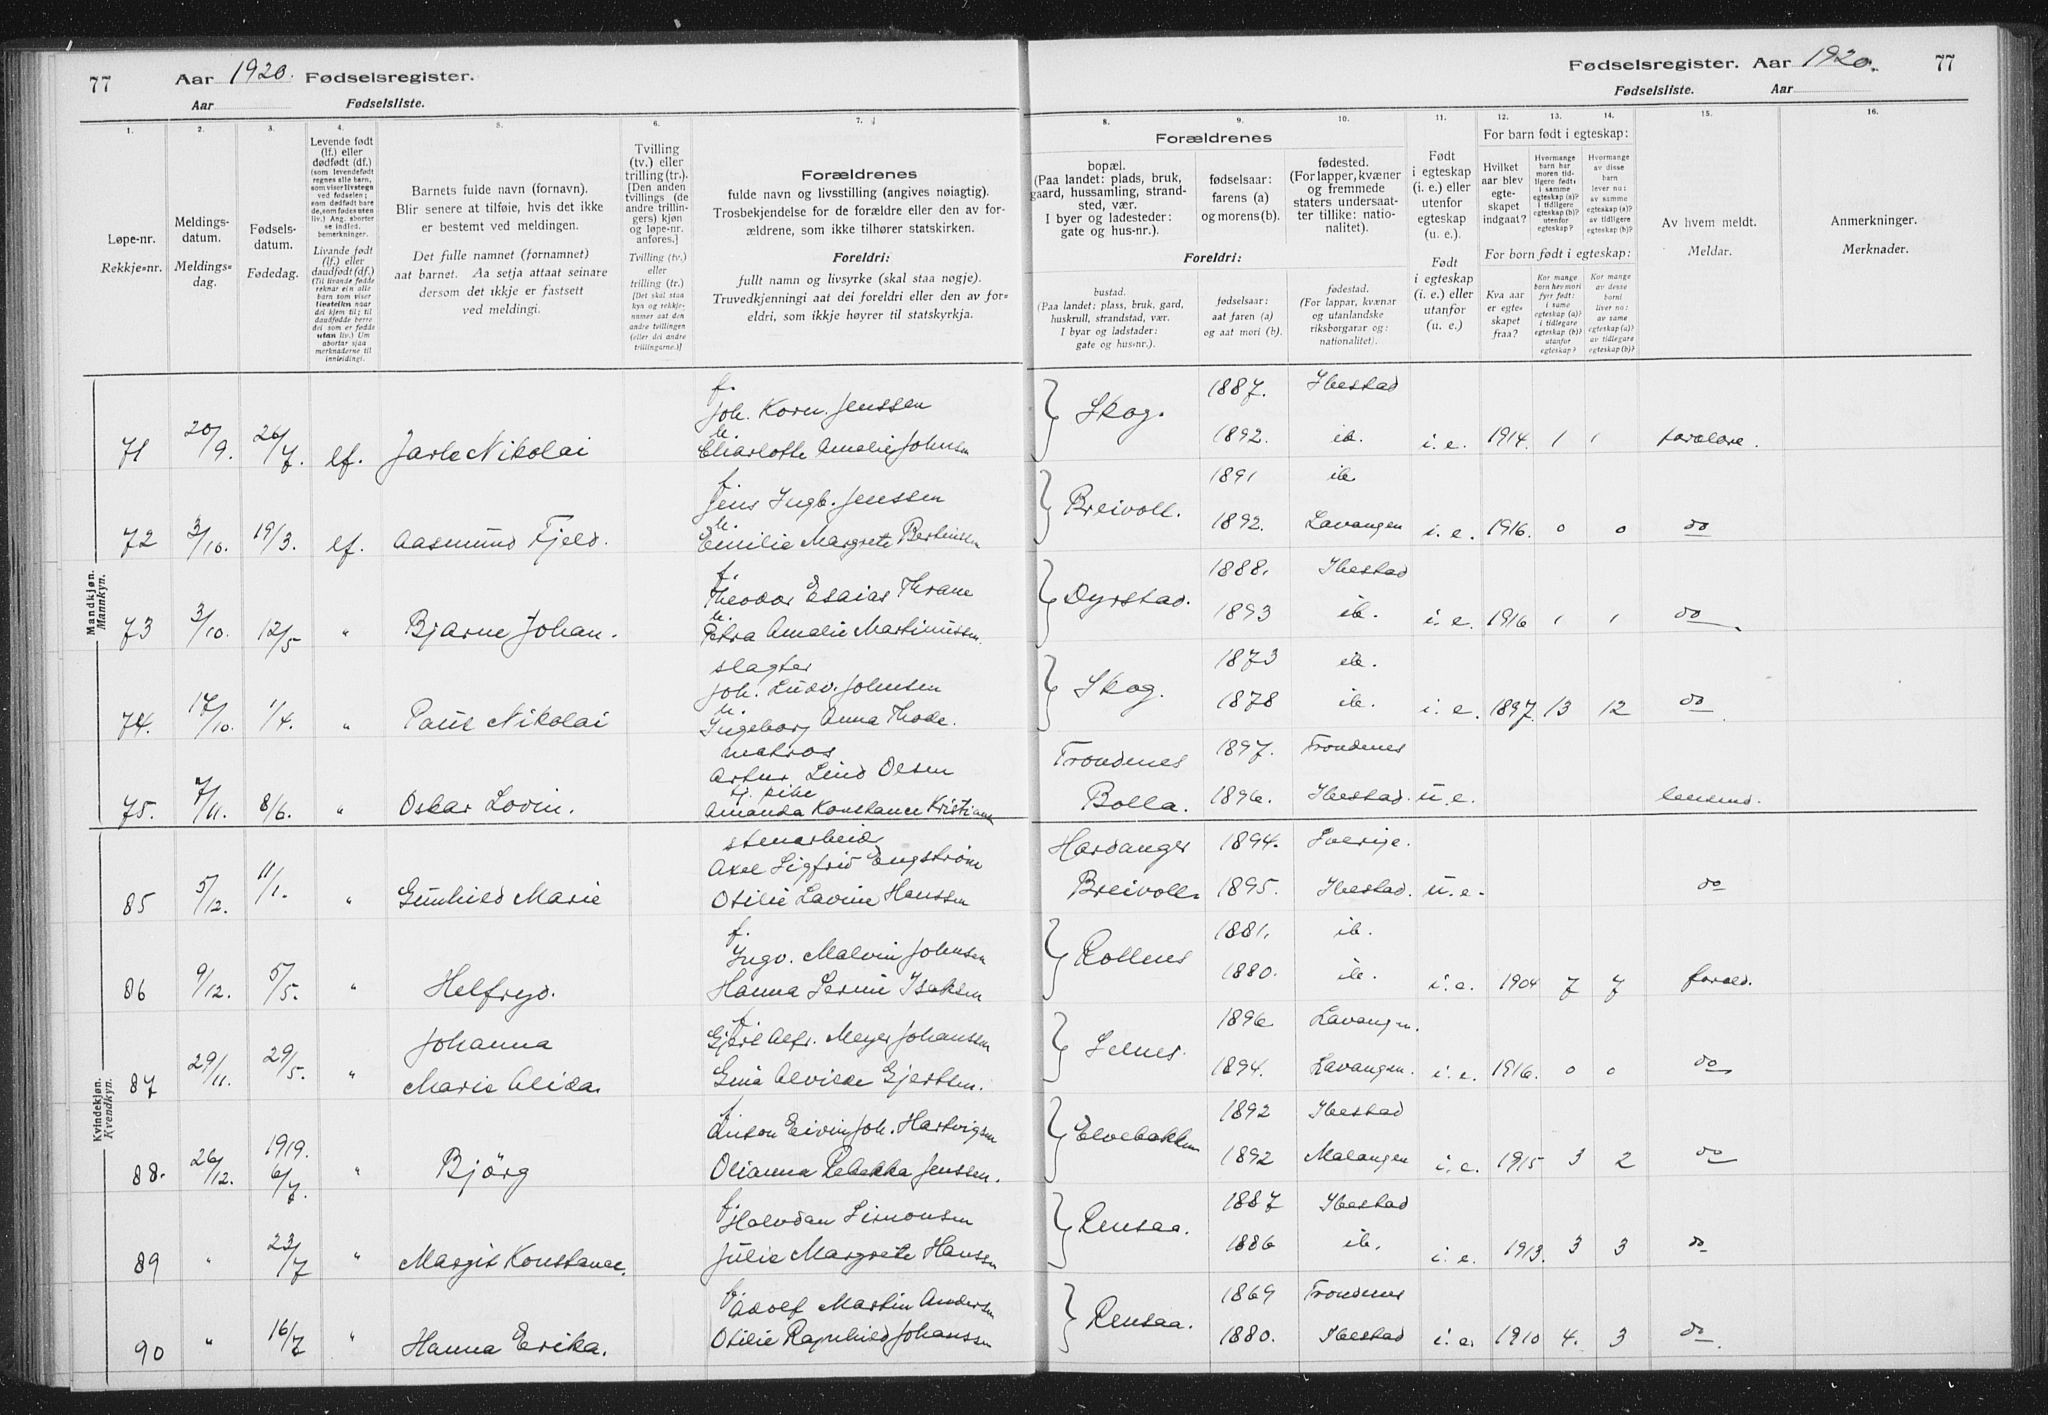 77 Aar 1920. Fødselsregister.
Aar Fødselsliste.
Fødselsregister. Aar 1920. 77
Fødselsliste. Aar
1. 2. 3. 4. 5. 6. 7. 8. 9. 10. 11. 12. 13. 14. 15. 16.
Løpe-nr.
Rekkje-nr.
Meldings-
datum.
Meldings-
dag.
Fødsels-
datum.
Fødedag.
Levende født
(lf.) eller
dødfødt (df.)
(som levendefødt
regnes alle barn,
som viser livstegn
ved fødselen;
som dødfødt bare
de, som fødes uten
liv.) Ang. aborter
se indled.
bemerkninger.
Livande født
(lf.) eller
daudfødt (df.)
(Til livande fødde
reknar ein alle
barn som viser
livsteikn naar
dei kjem til; til
daudfødde berre
dei som er fødde
utan liv.) Um
abortar sjaa
merknaderne til
innleidingi.
Barnets fulde navn (fornavn).
Blir senere at tilføie, hvis det ikke
er bestemt ved meldingen.
Det fulle namnet (fornamnet)
aat barnet. Aa setja attaat seinare
dersom det ikkje er fastsett
ved meldingi.
Tvilling
(tv.) eller
trilling (tr.).
[Den anden
tvillings (de
andre trillin-
gers) kjøn
og løpe-nr.
anføres.]
Tvilling (tv.)
eller
trilling (tr.)
[Det skal staa
kyn og rekkje-
nummer aat den
andre tvillingen
(eller dei andre
trillingarne.)]
Forældrenes
fulde navn og livsstilling (angives nøiagtig).
Trosbekjendelse for de forældre eller den av for-
ældrene, som ikke tilhører statskirken.
Foreldri:
fullt namn og livsyrke (skal staa nøgje).
Truvedkjenningi aat dei foreldri eller den av for-
eldri, som ikkje høyrer til statskyrkja.
Forældrenes
bopæl.
(Paa landet: plads, bruk,
gaard, hussamling, strand-
sted, vær.
I byer og ladesteder:
gate og hus-nr.).
fødselsaar:
farens (a)
og morens (b).
fødested.
(For lapper, kvæner
og fremmede
staters undersaat-
ter tillike: natio-
nalitet).
Foreldri:
bustad.
(Paa landet: plass, bruk, gard,
huskrull, strandstad, vær.
I byar og ladstader:
gate og hus-nr.).
fødselsaar:
aat faren (a)
og aat mori (b).
fødestad.
(For lappar, kvænar
og utanlandske
riksborgarar og:
nationalitet).
Født
i egteskap
(i. e.) eller
utenfor
egteskap
(u. e.).
Født
i egteskap
(i. e.) eller
utanfor
(u. e.)
For barn født i egteskap:
Hvilket
aar blev
egte-
skapet
indgaat?
Hvormange
barn har
moren tid-
ligere født:
i samme
egteskap (a)?
i tidligere
egteskap (b)?
utenfor
egteskap?
Hvormange
av disse
barn
lever nu:
av samme
egteskap (a)?
av tidligere
egteskap (b)?
For barn født i egteskap:
Kva aar
er egte-
skapet
fraa?
Kor mange
born hev mori
fyrr født:
i same
egteskap (a)?
i tidlegare
egteskap (b)?
utanfor
egteskap?
Kor mange
av desse
borni
liver no:
av same
egteskap (a)?
av tidlegare
egteskap (b)?
Av hvem meldt.
Meldar.
Anmerkninger.
Merknader.
Mandkjøn.
Mannkyn.
f.
Joh. Korn. Jenssen Skog. 1887. Ibestad
71 20/9. 26/7. lf. Jarle Nikolai h. Charlotte Amalie Johnsen 1892. ib. i. e. 1914. 1 1 forældre.
f.
Jens Ingb. Jenssen Breivoll. 1891 ib
72 3/10. 19/3. lf. Aasmund Fjeld. h. Emilie Margrete Bertinsen 1892. Lavangen i. e. 1916. 0 0 do
f.
Theodor Esaias Thrane Dyrstad. 1888. Ibestad
73 3/10. 12/5 " Bjarne Johan. h. Petra Amalie Martinussen 1893 ib. i. e. 1916 1 1 do
slagter
Joh. Ludv. Johnsen Skog. 1873 ib.
74. 17/10. 1/4. " Paul Nikolai h. Ingeborg Anna Thode. 1878 ib. i. e. 1897. 13 12 do
matros
Artur Lind Olsen Trondenes 1897. Trondenes
75. 7/11. 8/6. " Oskar Lovin. tj. pike
Amanda Konstance Kristiansen Bolla. 1896. Ibestad. u. e. lensmd.
Kvindekjøn.
Kvendkyn.
stenarbeid
Axel Sigfrid Engstrøm Hardanger 1894. Sverige.
85 5/12. 11/1. " Gunhild Marie Otilie Lavine Hanssen Breivoll. 1895. Ibestad. u. e. do
f.
Ingv. Malvin Johnsen Rollnes 1881. ib.
86 9/12. 5/5. " Helfryd. Hanna Serine Isaksen 1880. ib. i. e. 1904 7 7 foræld.
f.
Johanna Gjert Alfr. Meyer Johanssen Selnes. 1896 Lavangen.
87 29/11. 29/5. " Marie Alida. Gina Alvilde Gjertsen. 1894. Lavangen. i. e. 1916. 0 0 do
f.
Anton Eivin Joh. Hartvigsen Elvebakken 1892 Ibestad
88. 26/12. 1919. 6/7. " Bjørg Olianna Rebekka Jenssen. 1892 Malangen i. e. 1915 3 2 do
f.
Halvdan Simonsen Rensaa. 1887 Ibestad
89 " 23/7 " Margit Konstance. Julie Margrete Hanssen 1886 ib. i. e. 1913. 3 3 do
f.
Adolf Martin Andersen Rensaa. 1869 Trondenes
90 " 16/7 " Hanna Erika. Otilie Ragnhild Johanssen 1880. Ibestad i. e. 1910 4. 3 do